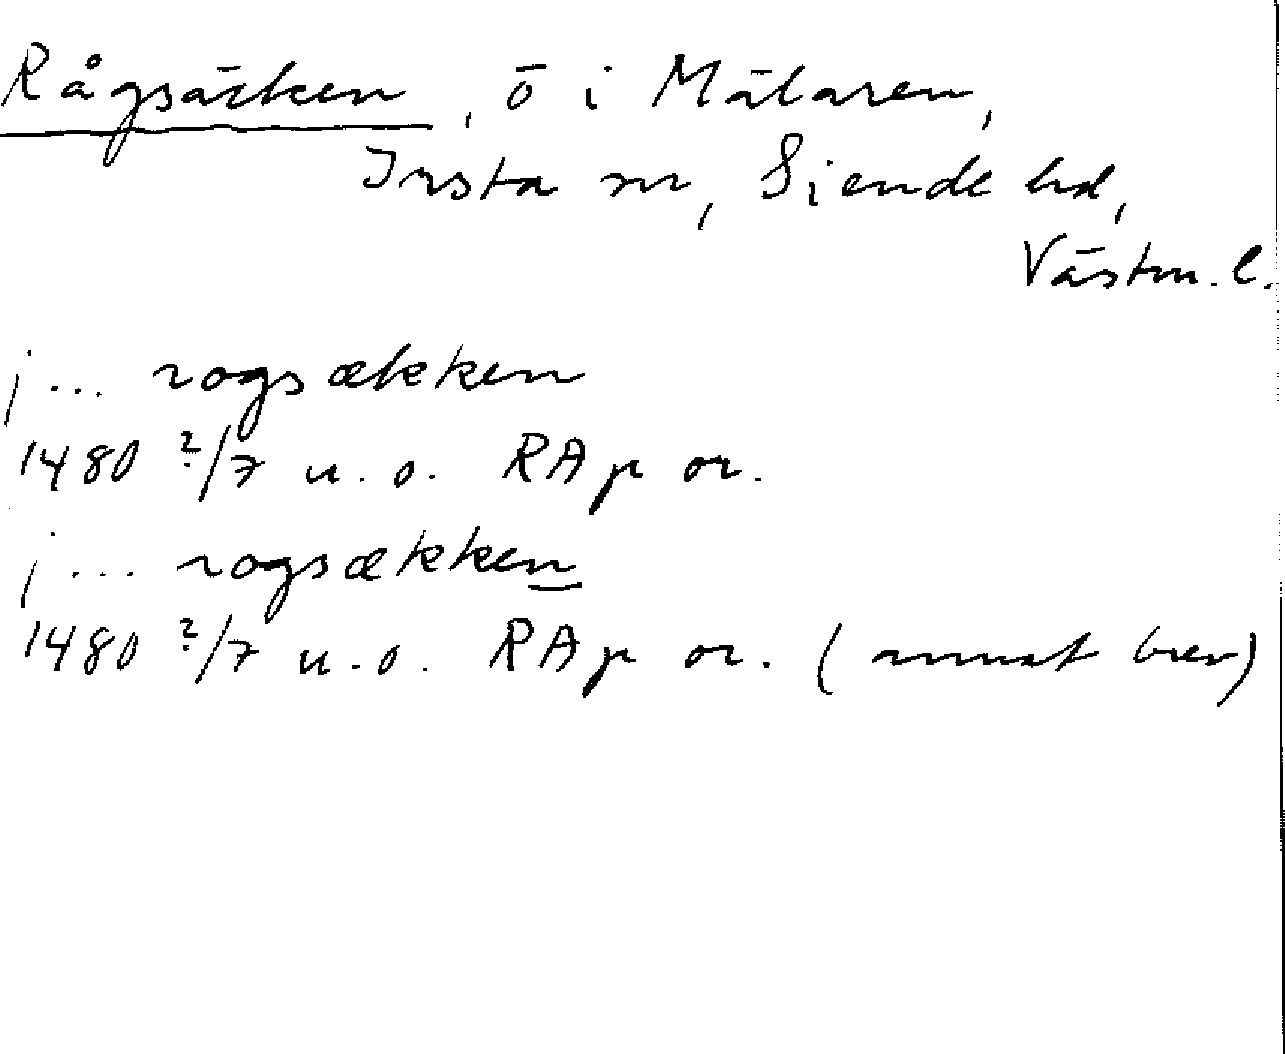 Rågsäcken, ö i Mälaren,
Irsta sn, Siende hd,
Västm. l.
j ... rogsækken
1480 ?/7 u. o. RAp or.
j ... rogsækken
1480 ?/7 u. o. RAp or. (annat brev)